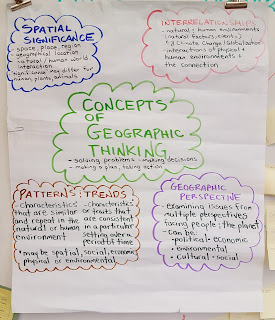 SPATIAL
SIGNIFICANCE
- space, place, region
- geographical location
- natural / human world
interaction
- significance may differ for
human, plants, animals
INTERRELATIONSHIPS
- natural + human environments
(natural factors, events)
Climate Change / Globalization
- interaction of physical +
human environments +
the connection
CONCEPTS
OF
GEOGRAPHIC
THINKING
- solving problems - making decisions
- making a plan, taking action
PATTERNS : TRENDS
- characteristics
that are similar
and repeat in the
natural or human
environment
- characteristics
or traits that
are consistent
in a particular
setting over a
period of time
* may be spatial, social, economic
physical or environmental
GEOGRAPHIC
PERSPECTIVE
- Examining issues from
multiple perspectives
facing people : the planet
- can be:
- political - economic
- environmental
- cultural - social